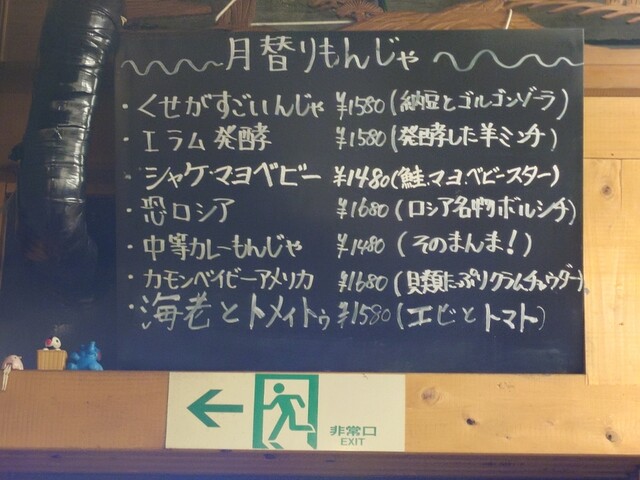 月替りもんじゃ
・くせがすごいんじゃ ¥1580(納豆とゴルゴンゾーラ)
・エラム発酵 ¥1580(発酵した羊ミンチ)
・シャケ・マヨベビー ¥1480(鮭.マヨ.ベビースター)
・恐ロシア ¥1680(ロシア名物ボルシチ)
・中等カレーもんじゃ ¥1480(そのまんま!)
・カモンベイビーアメリカ ¥1680(貝類たっぷりクラムチャウダー)
・海老とトメィトゥ ¥1580(エビとトマト)
非常口
EXIT